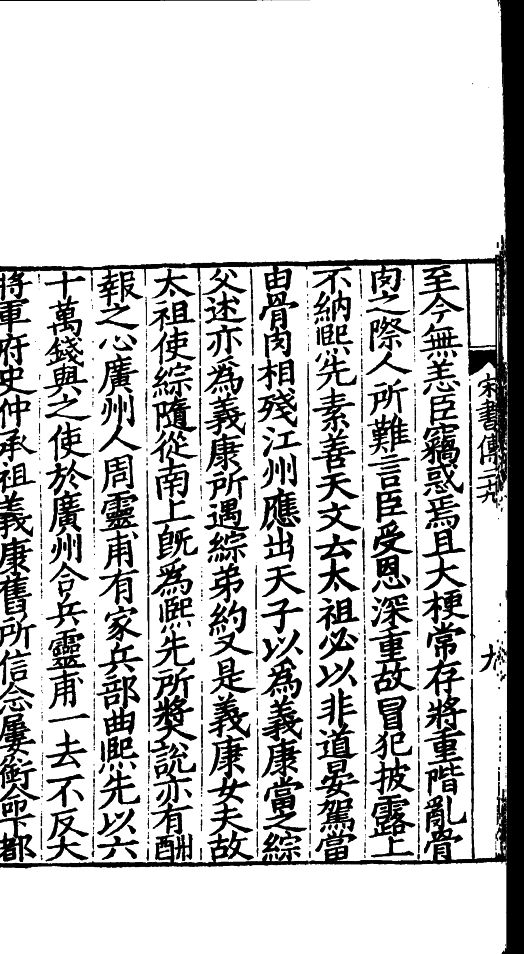 宋書傳二九
九
至今無恙臣竊惑焉且大梗常存將重階亂骨
肉之際人所難言臣受恩深重故冒犯披露上
不納熙先素善天文云太祖必以非道晏駕當
由骨肉相殘江州應出天子以為義康當之綜
父述亦為義康所遇綜弟約又是義康女夫故
太祖使綜隨從南上旣為熙先所奬說亦有酬
報之心廣州人周靈甫有家兵部曲熙先以六
十萬錢與之使於廣州合兵靈甫一去不反大
將軍府史仲承祖義康舊所信念屢銜命下都